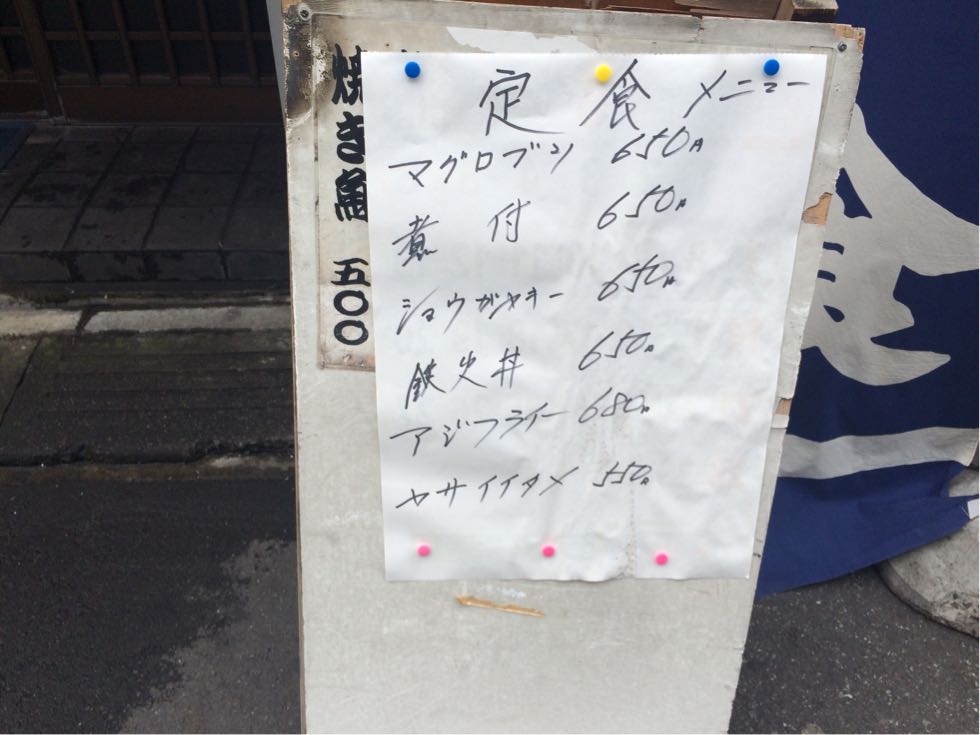 定食メニュー
マグロブツ 650円
煮付 650円
ショウガヤキー 650円
鉄火丼 650円
アジフライー 680円
ヤサイイタメ 550円
焼き魚 五〇〇